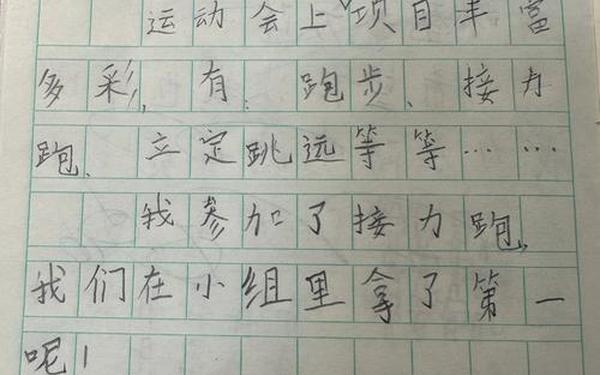 运动会上项目丰富
多彩,有:跑步、接力
跑、立定跳远等等……
我参加了接力跑,
我们在小组里拿了第一
呢!